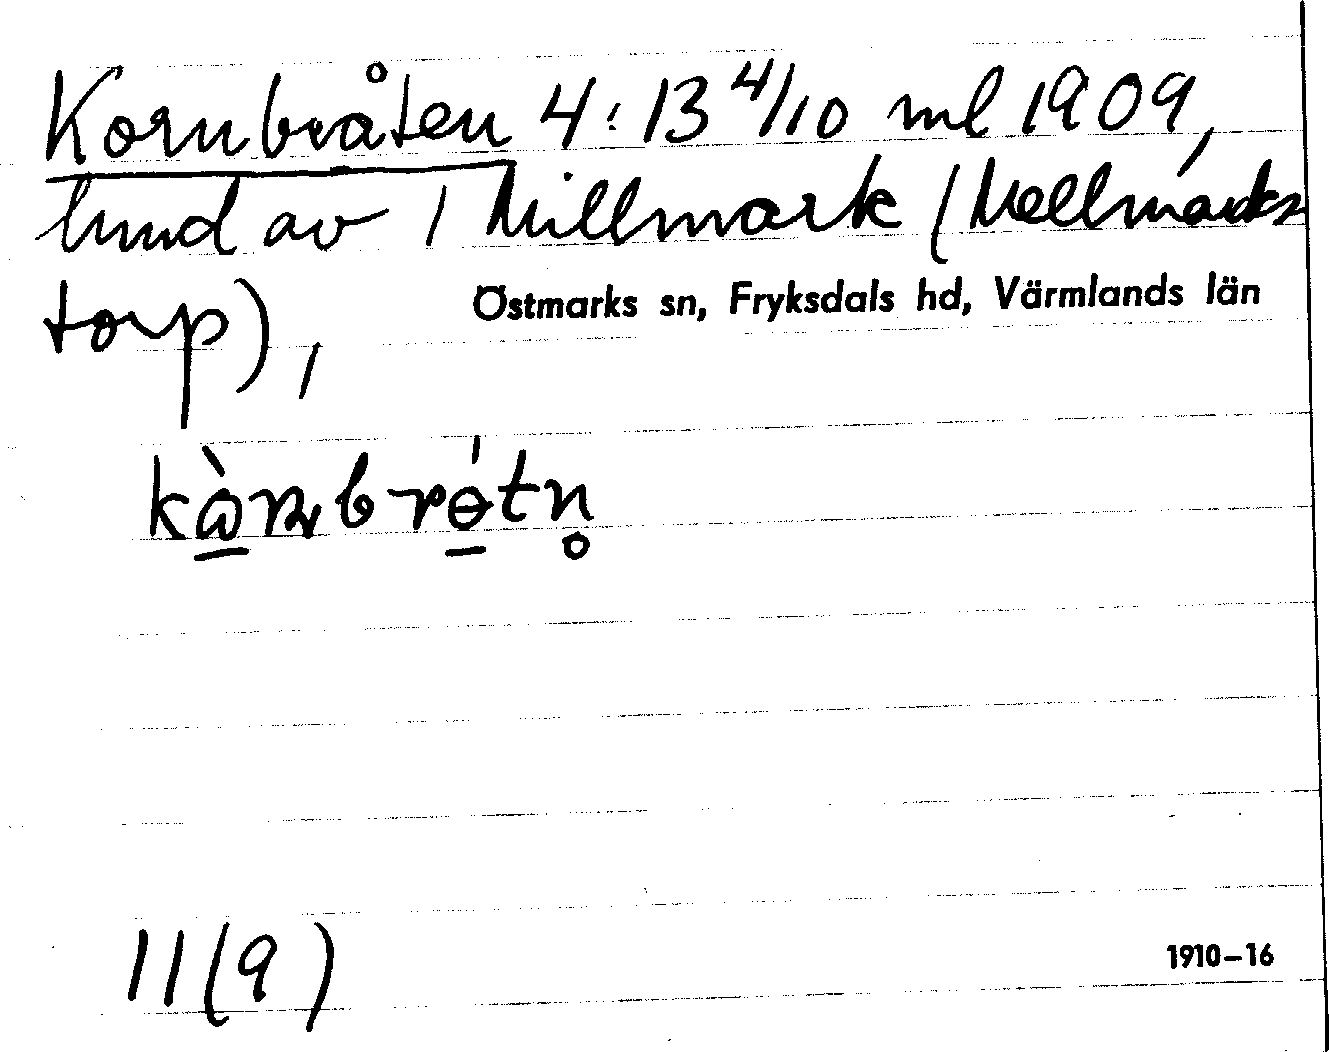 Kornbråten 4:13 4/10 ml 1909,
lund av 1 Millmark (Mellmarks
torp),
Östmarks sn, Fryksdals hd, Värmlands län
11(9)
1910–16